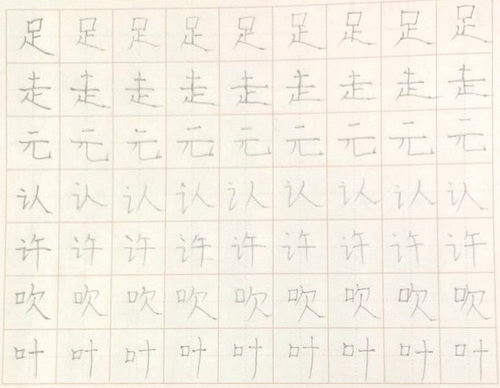 足足足足足足足足足
走走走走走走走走走
元元元元元元元元元
认认认认认认认认认
许许许许许许许许许
吹吹吹吹吹吹吹吹吹
叶叶叶叶叶叶叶叶叶